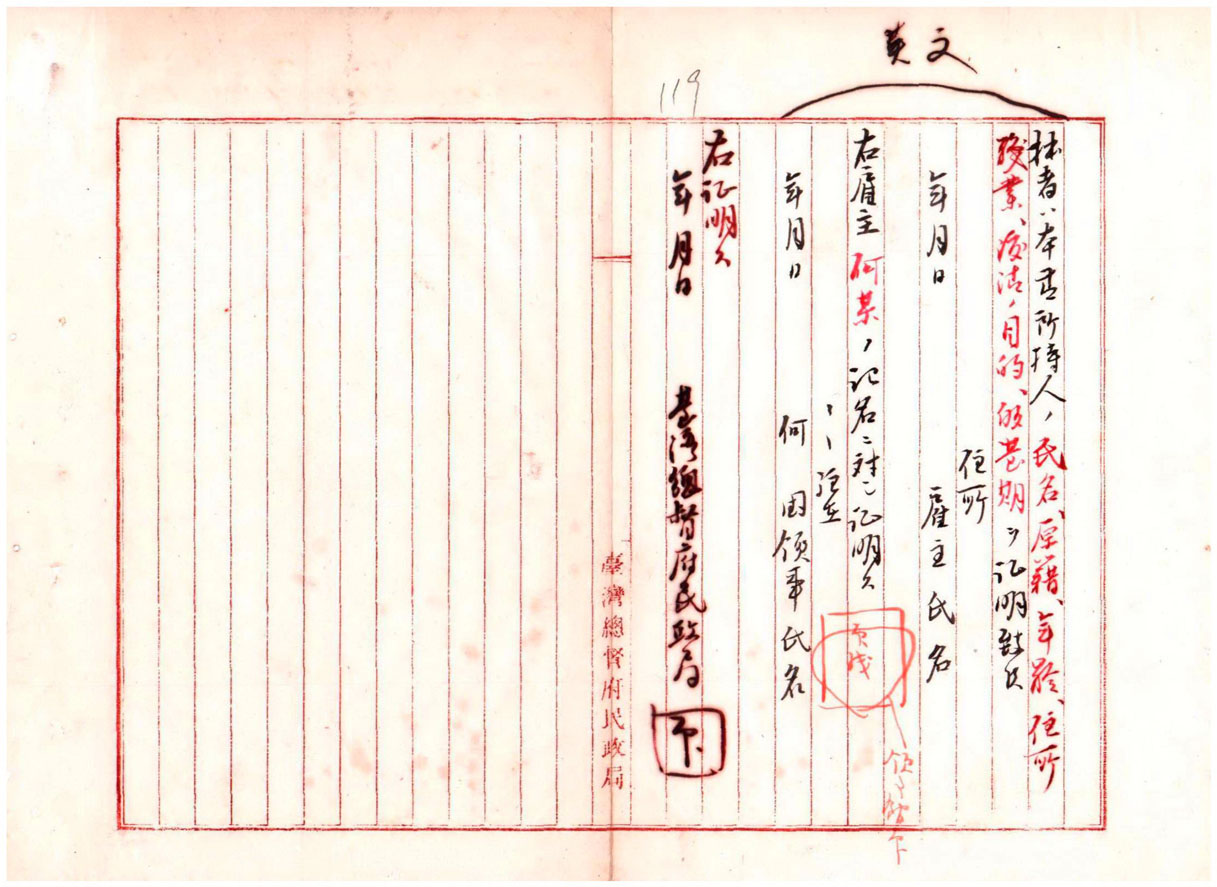 英文
119
拙者ハ本書所持人ノ氏名、原籍、年齢、住所
職業、渡清ノ目的、飯臺期ヲ証明致候
年月日
住所
雇主氏名
右雇主何某ノ記名ニ対シ証明ス
年月日
何国領事氏名
右証明ス
年月日
臺湾總督府民政局
印
臺灣總督府民政局